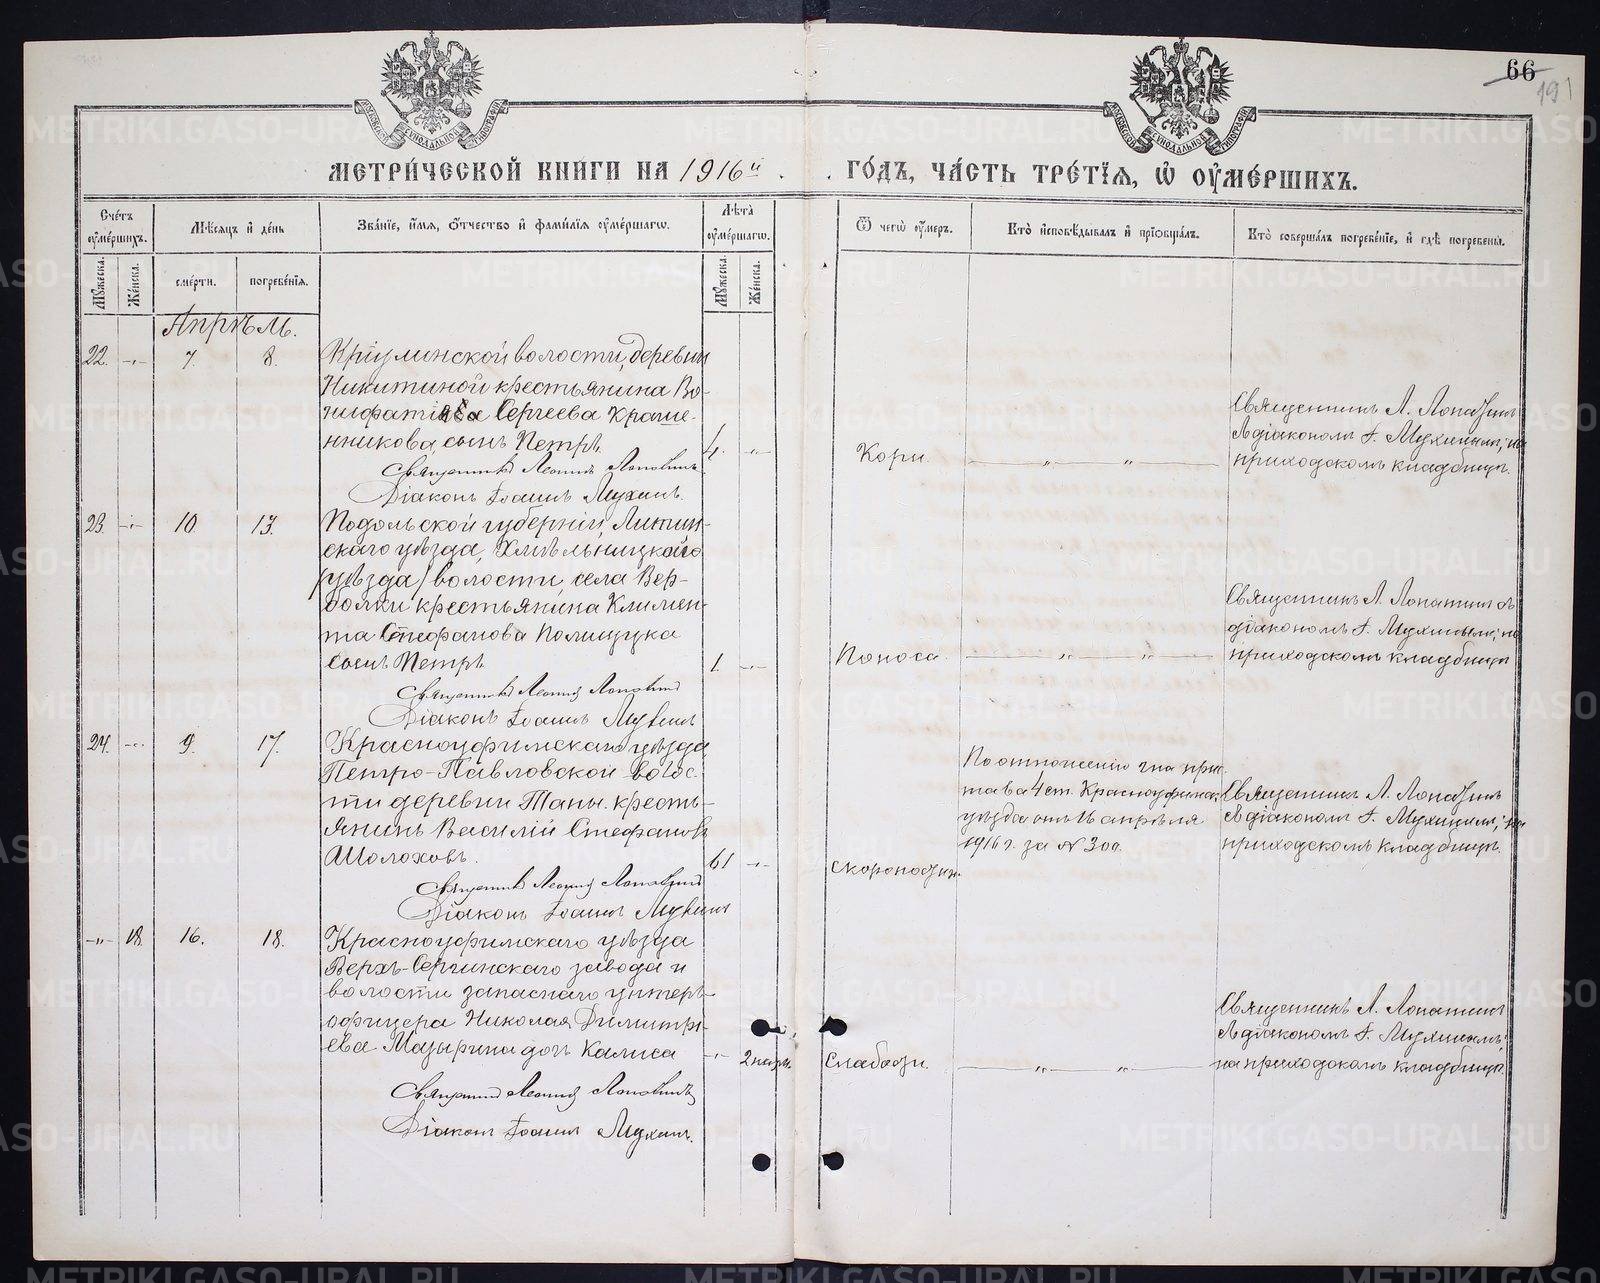 66
191
МЕТРИ́ЧЕСКОЙ КНИГИ НА 1916й ГО́ДЪ, ЧА́СТЬ ТРЕ́ТІѦ, Ѡ ОУ҆МЕ́РШИХЪ.
Сче́тъ оумершихъ.
Мѣсяцъ и де́нь
Зва́нїе, и҆́мѧ, ѻ҆́тчество и҆ фами́лїѧ оу҆ме́ршагѡ.
Лѣта̀ оумершагѡ.
Ѿ чегѡ̀ оу҆́меръ.
Кто̀ и҆сповѣ́дывалъ и҆ прїѡбща́лъ.
Кто̀ соверша́лъ погребе́нїе, и҆ гдѣ̀ погребены̀.
Мужеска.
Женска.
сме́рти.
погребе́нїѧ.
Мужеска.
Женска.
Апрѣль.
22. -„- 7. 8. Кріулинской волости, деревни
Никитиной крестьянина Во-
нифатія Сергеева Краше-
нникова, сынъ Петръ. 4. -„-
Священникъ Леонидъ Лопатинъ
Діаконъ Іоаннъ Мухинъ.
Кори. „ „
Священникъ Л. Лопатинъ
съ діакономъ І. Мухинымъ; на
приходскомъ кладбищѣ.
23. -„- 10 13. Подольской губерніи, Литин-
скаго уѣзда, Хмѣльницкаго
(уѣзда) волости, села Вер-
болки крестьянина Климен-
та Стефанова Полищука
сынъ Петръ 1. -„-
Священникъ Леонидъ Лопатинъ
Діаконъ Іоаннъ Мухинъ
Поноса. „ „
Священникъ Л. Лопатинъ съ
діакономъ І. Мухинымъ; на
приходскомъ кладбищѣ
24. -„- 9. 17. Красноуфимскаго уѣзда
Петро-Павловской волос-
ти деревни Таны. кресть-
янинъ Василій Стефановъ
Шолоховъ. 61 -„-
Священникъ Леонидъ Лопатинъ
Діаконъ Іоаннъ Мухинъ
Скоропостиж.
По отношенію г-на прис-
тава 4 ст. Красноуфимск.
уѣзда отъ 16 апрѣля
1916 г. за № 300.
Священникъ Л. Лопатинъ
съ діакономъ І. Мухинымъ; на
приходскомъ кладбищѣ.
-„- 18. 16. 18. Красноуфимскаго уѣзда
Верхъ-Сергинскаго завода и
волости запаснаго унтеръ-
офицера Николая Димитрі-
ева Мазырина дочь Калиса -„- 2 нед.
Священникъ Леонидъ Лопатинъ
Діаконъ Іоаннъ Мухинъ.
Слабости. „ „
Священникъ Л. Лопатинъ
съ діакономъ І. Мухинымъ;
на приходскомъ кладбищѣ.
METRIKI.GASO-URAL.RU